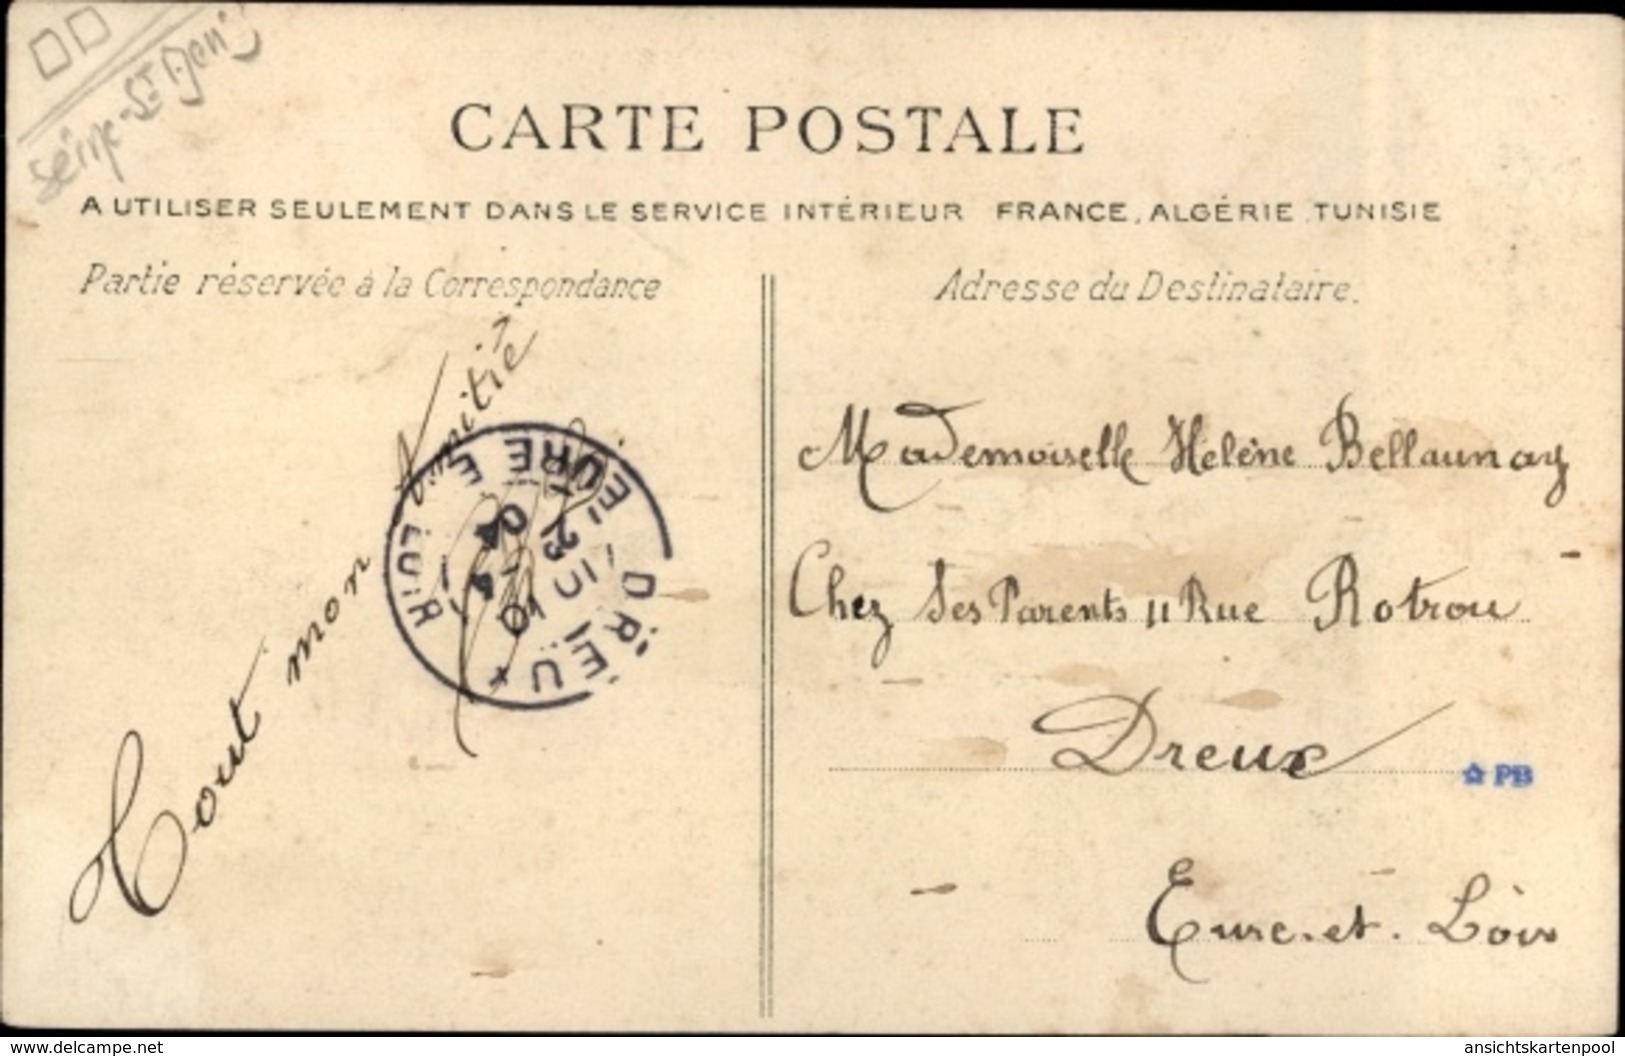 Seine-St Denis
CARTE POSTALE
A UTILISER SEULEMENT DANS LE SERVICE INTÉRIEUR FRANCE, ALGÉRIE, TUNISIE
Partie réservée à la Correspondance
Adresse du Destinataire.
Tout mon Amitié
DREUX * EURE ET LOIR
Mademoiselle Hélène Bellaunay
Chez Ses Parents 11 Rue Rotrou
Dreux
PB
Eure.et.Loir
www.delcampe.net
ansichtskartenpool